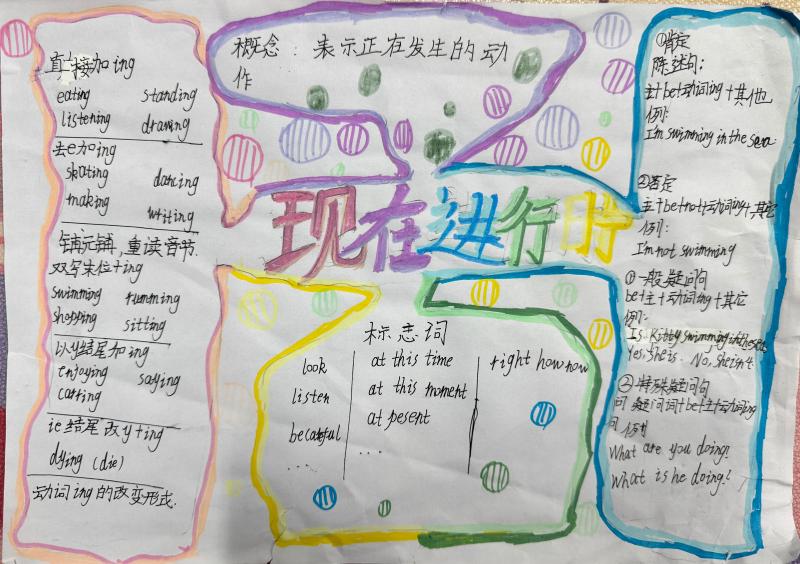 直接加ing
eating standing
listening drawing
去e加ing
skating dancing
making writing
辅元辅，重读音节
双写末位+ing
swimming running
shopping sitting
以y结尾加ing
enjoying saying
carring
ie结尾改y+ing
dying (die)
动词ing的改变形式.
概念：表示正在发生的动
作
现在进行时
标志词
look at this time right how now
listen at this moment
becareful at pesent
... ...
①肯定
陈述句:
主+be+动词ing+其他
例:
I'm swimming in the sea.
②否定
主+be+not+动词ing+其它
例:
I'm not swimming
①一般疑问句
be+主+动词ing+其它
例:
Is Kitty swimming in the sea
Yes, she is. No, she isn't.
②特殊疑问句
问 疑问词+be+主+动词ing
问 例
What are you doing?
What is he doing?